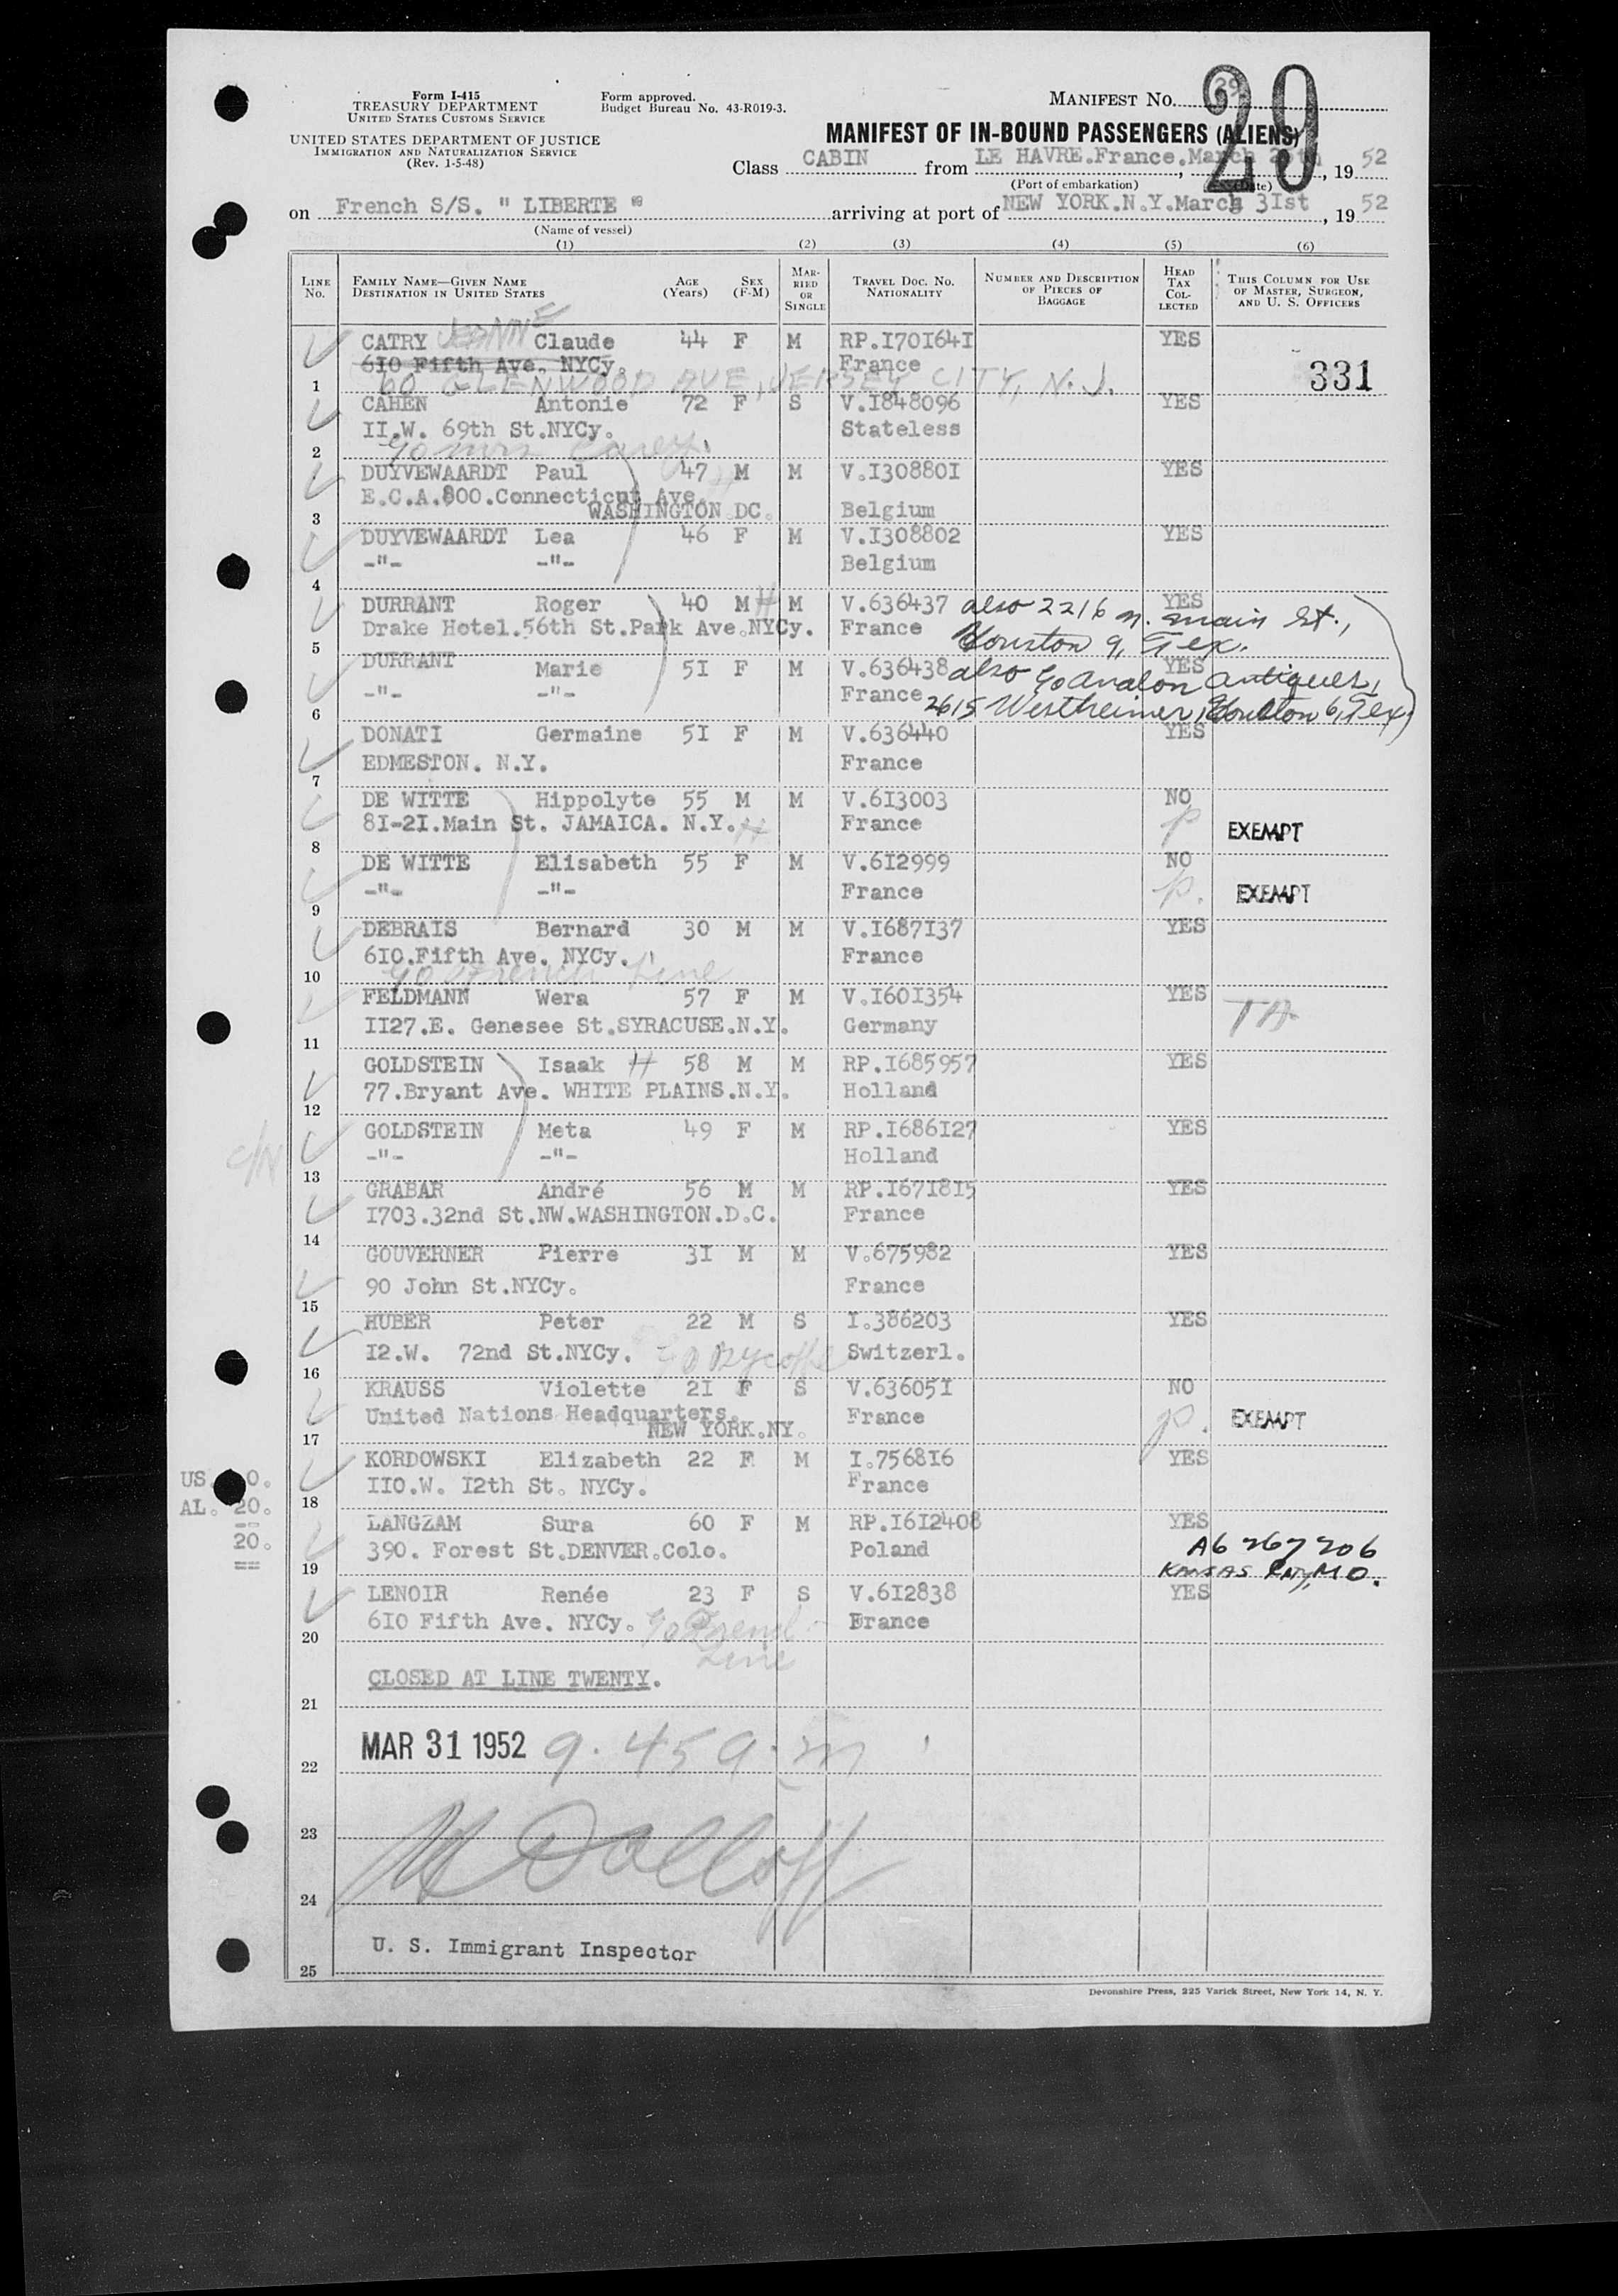 Form I-415
TREASURY DEPARTMENT
UNITED STATES CUSTOMS SERVICE
UNITED STATES DEPARTMENT OF JUSTICE
IMMIGRATION AND NATURALIZATION SERVICE
(Rev. 1-5-48)
Form approved.
Budget Bureau No. 43-R019-3.
MANIFEST NO.
29
MANIFEST OF IN-BOUND PASSENGERS (ALIENS)
Class CABIN from LE HAVRE.France.March , 19 52
(Port of embarkation) (Date)
on French S/S. " LIBERTE " arriving at port of NEW YORK.N.Y.March 3Ist , 19 52
(Name of vessel)
(1) (2) (3) (4) (5) (6)
LINE No. FAMILY NAME—GIVEN NAME DESTINATION IN UNITED STATES AGE (Years) SEX (F-M) MARRIED OR SINGLE TRAVEL DOC. NO. NATIONALITY NUMBER AND DESCRIPTION OF PIECES OF BAGGAGE HEAD TAX COLLECTED THIS COLUMN FOR USE OF MASTER, SURGEON, AND U. S. OFFICERS
CATRY JEANNE Claude 44 F M RP.I70I64I YES
6I0 Fifth Ave. NYCy. France 331
1 60 GLENWOOD AVE, JERSEY CITY, N. J.
CAHEN Antonie 72 F S V.I848096 YES
II.W. 69th St.NYCy. Stateless
2 c/o Mrs Carey
DUYVEWAARDT Paul 47 M M V.I30880I YES
E.C.A.800.Connecticut Ave.
3 WASHINGTON.DC. Belgium
DUYVEWAARDT Lea 46 F M V.I308802 YES
-"- -"- Belgium
4
DURRANT Roger 40 M H M V.636437 YES also 2216 N. Main St.,
Drake Hotel.56th St.Park Ave.NYCy. France Houston 9, Tex.
5
DURRANT Marie 5I F M V.636438 YES also c/o Avalon Antiques,
-"- -"- France 2615 Westheimer, Houston 6, Tex.
6
DONATI Germaine 5I F M V.636440 YES
EDMESTON. N.Y. France
7
DE WITTE Hippolyte 55 M M V.6I3003 NO
8I-2I.Main St. JAMAICA. N.Y. H France p EXEMPT
8
DE WITTE Elisabeth 55 F M V.6I2999 NO
-"- -"- France p. EXEMPT
9
DEBRAIS Bernard 30 M M V.I687I37 YES
6I0.Fifth Ave. NYCy. France
10 c/o French Line
FELDMANN Wera 57 F M V.I60I354 YES
II27.E. Genesee St.SYRACUSE.N.Y. Germany
11
GOLDSTEIN Isaak H 58 M M RP.I685957 YES
77.Bryant Ave. WHITE PLAINS.N.Y. Holland
12
GOLDSTEIN Meta 49 F M RP.I686I27 YES
-"- -"- Holland
13
GRABAR André 56 M M RP.I67I8I5 YES
I703.32nd St.NW.WASHINGTON.D.C. France
14
GOUVERNER Pierre 3I M M V.675982 YES
90 John St.NYCy. France
15
HUBER Peter 22 M S I.386203 YES
I2.W. 72nd St.NYCy. Switzerl.
16
KRAUSS Violette 2I F S V.63605I NO
United Nations Headquarters. France p. EXEMPT
17 NEW YORK.NY.
KORDOWSKI Elizabeth 22 F M I.7568I6 YES
II0.W. I2th St. NYCy. France
18
US. 0.
AL. 20.
--
20.
==
LANGZAM Sura 60 F M RP.I6I2408 YES
390. Forest St.DENVER.Colo. Poland A6 267 206
19 KANSAS City, MO.
LENOIR Renée 23 F S V.6I2838 YES
6I0 Fifth Ave. NYCy. c/o French Line France
20
CLOSED AT LINE TWENTY.
21
MAR 31 1952 9.45 a.m
22
23
24
U. S. Immigrant Inspector
25
Devonshire Press, 225 Varick Street, New York 14, N. Y.